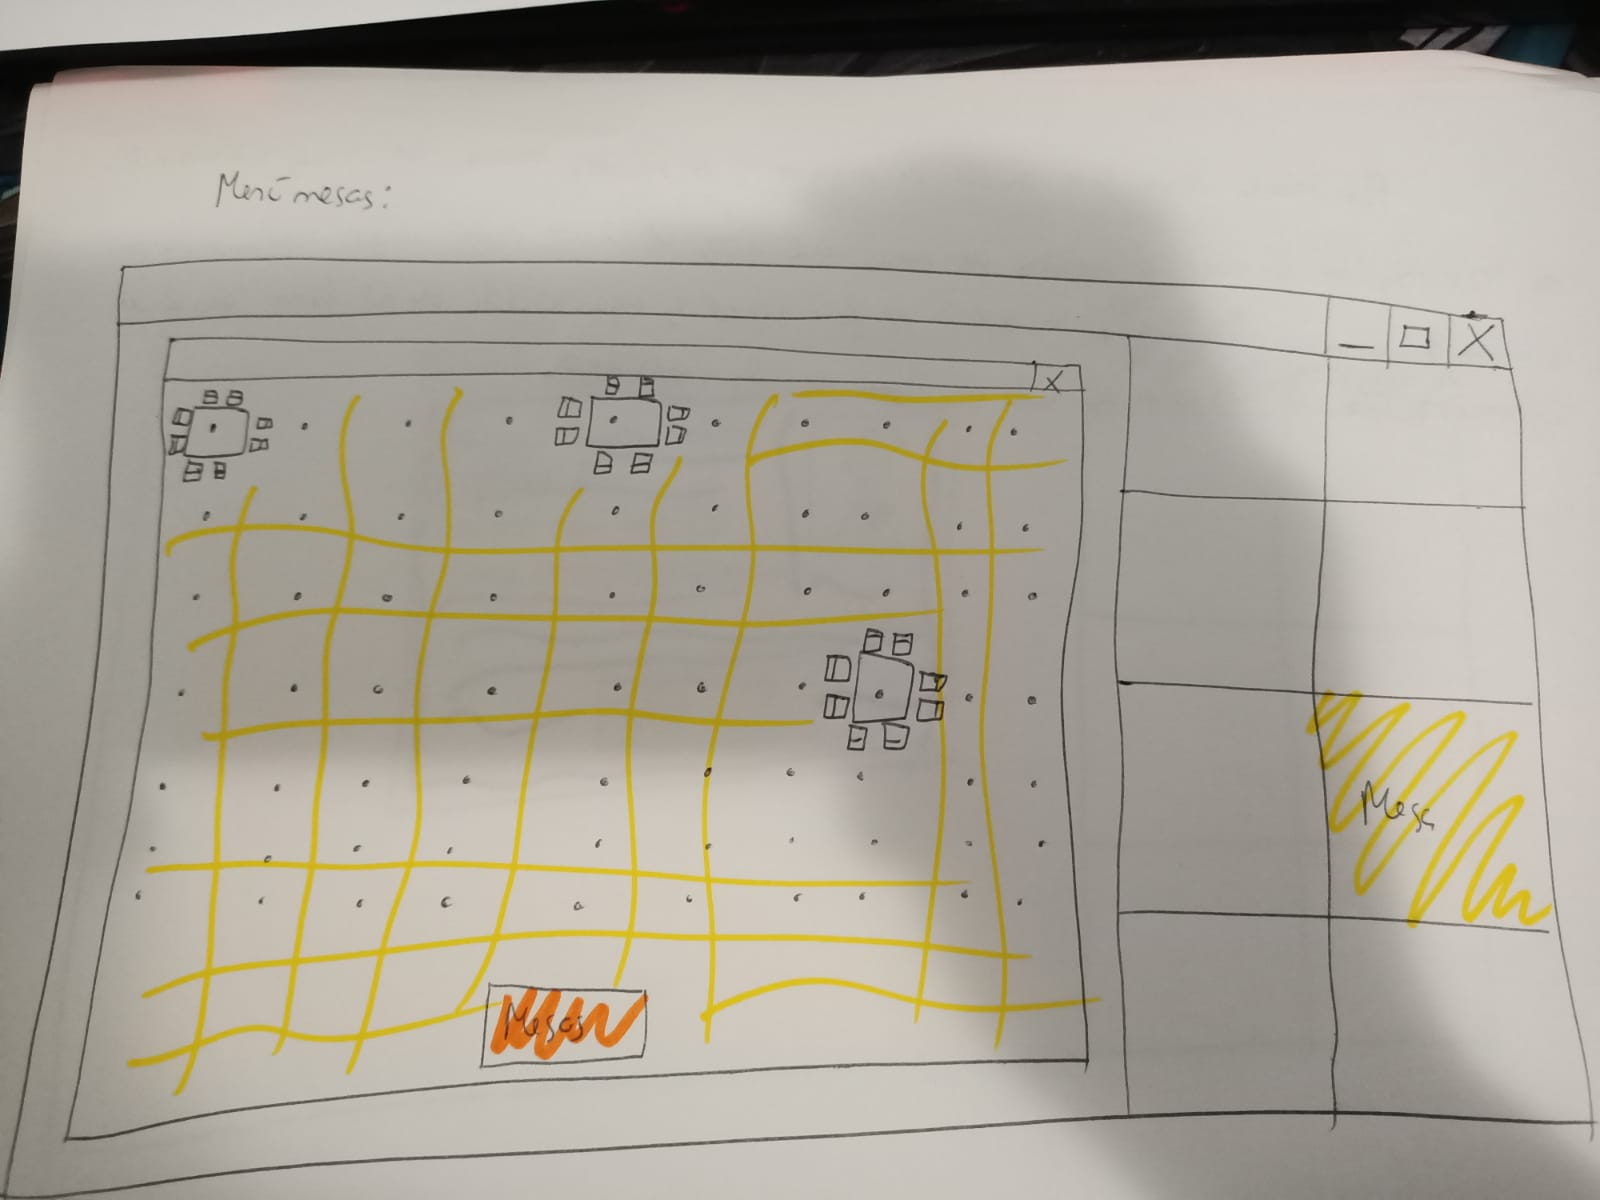 Menú mesas:
X
X
Mesa
Mesas